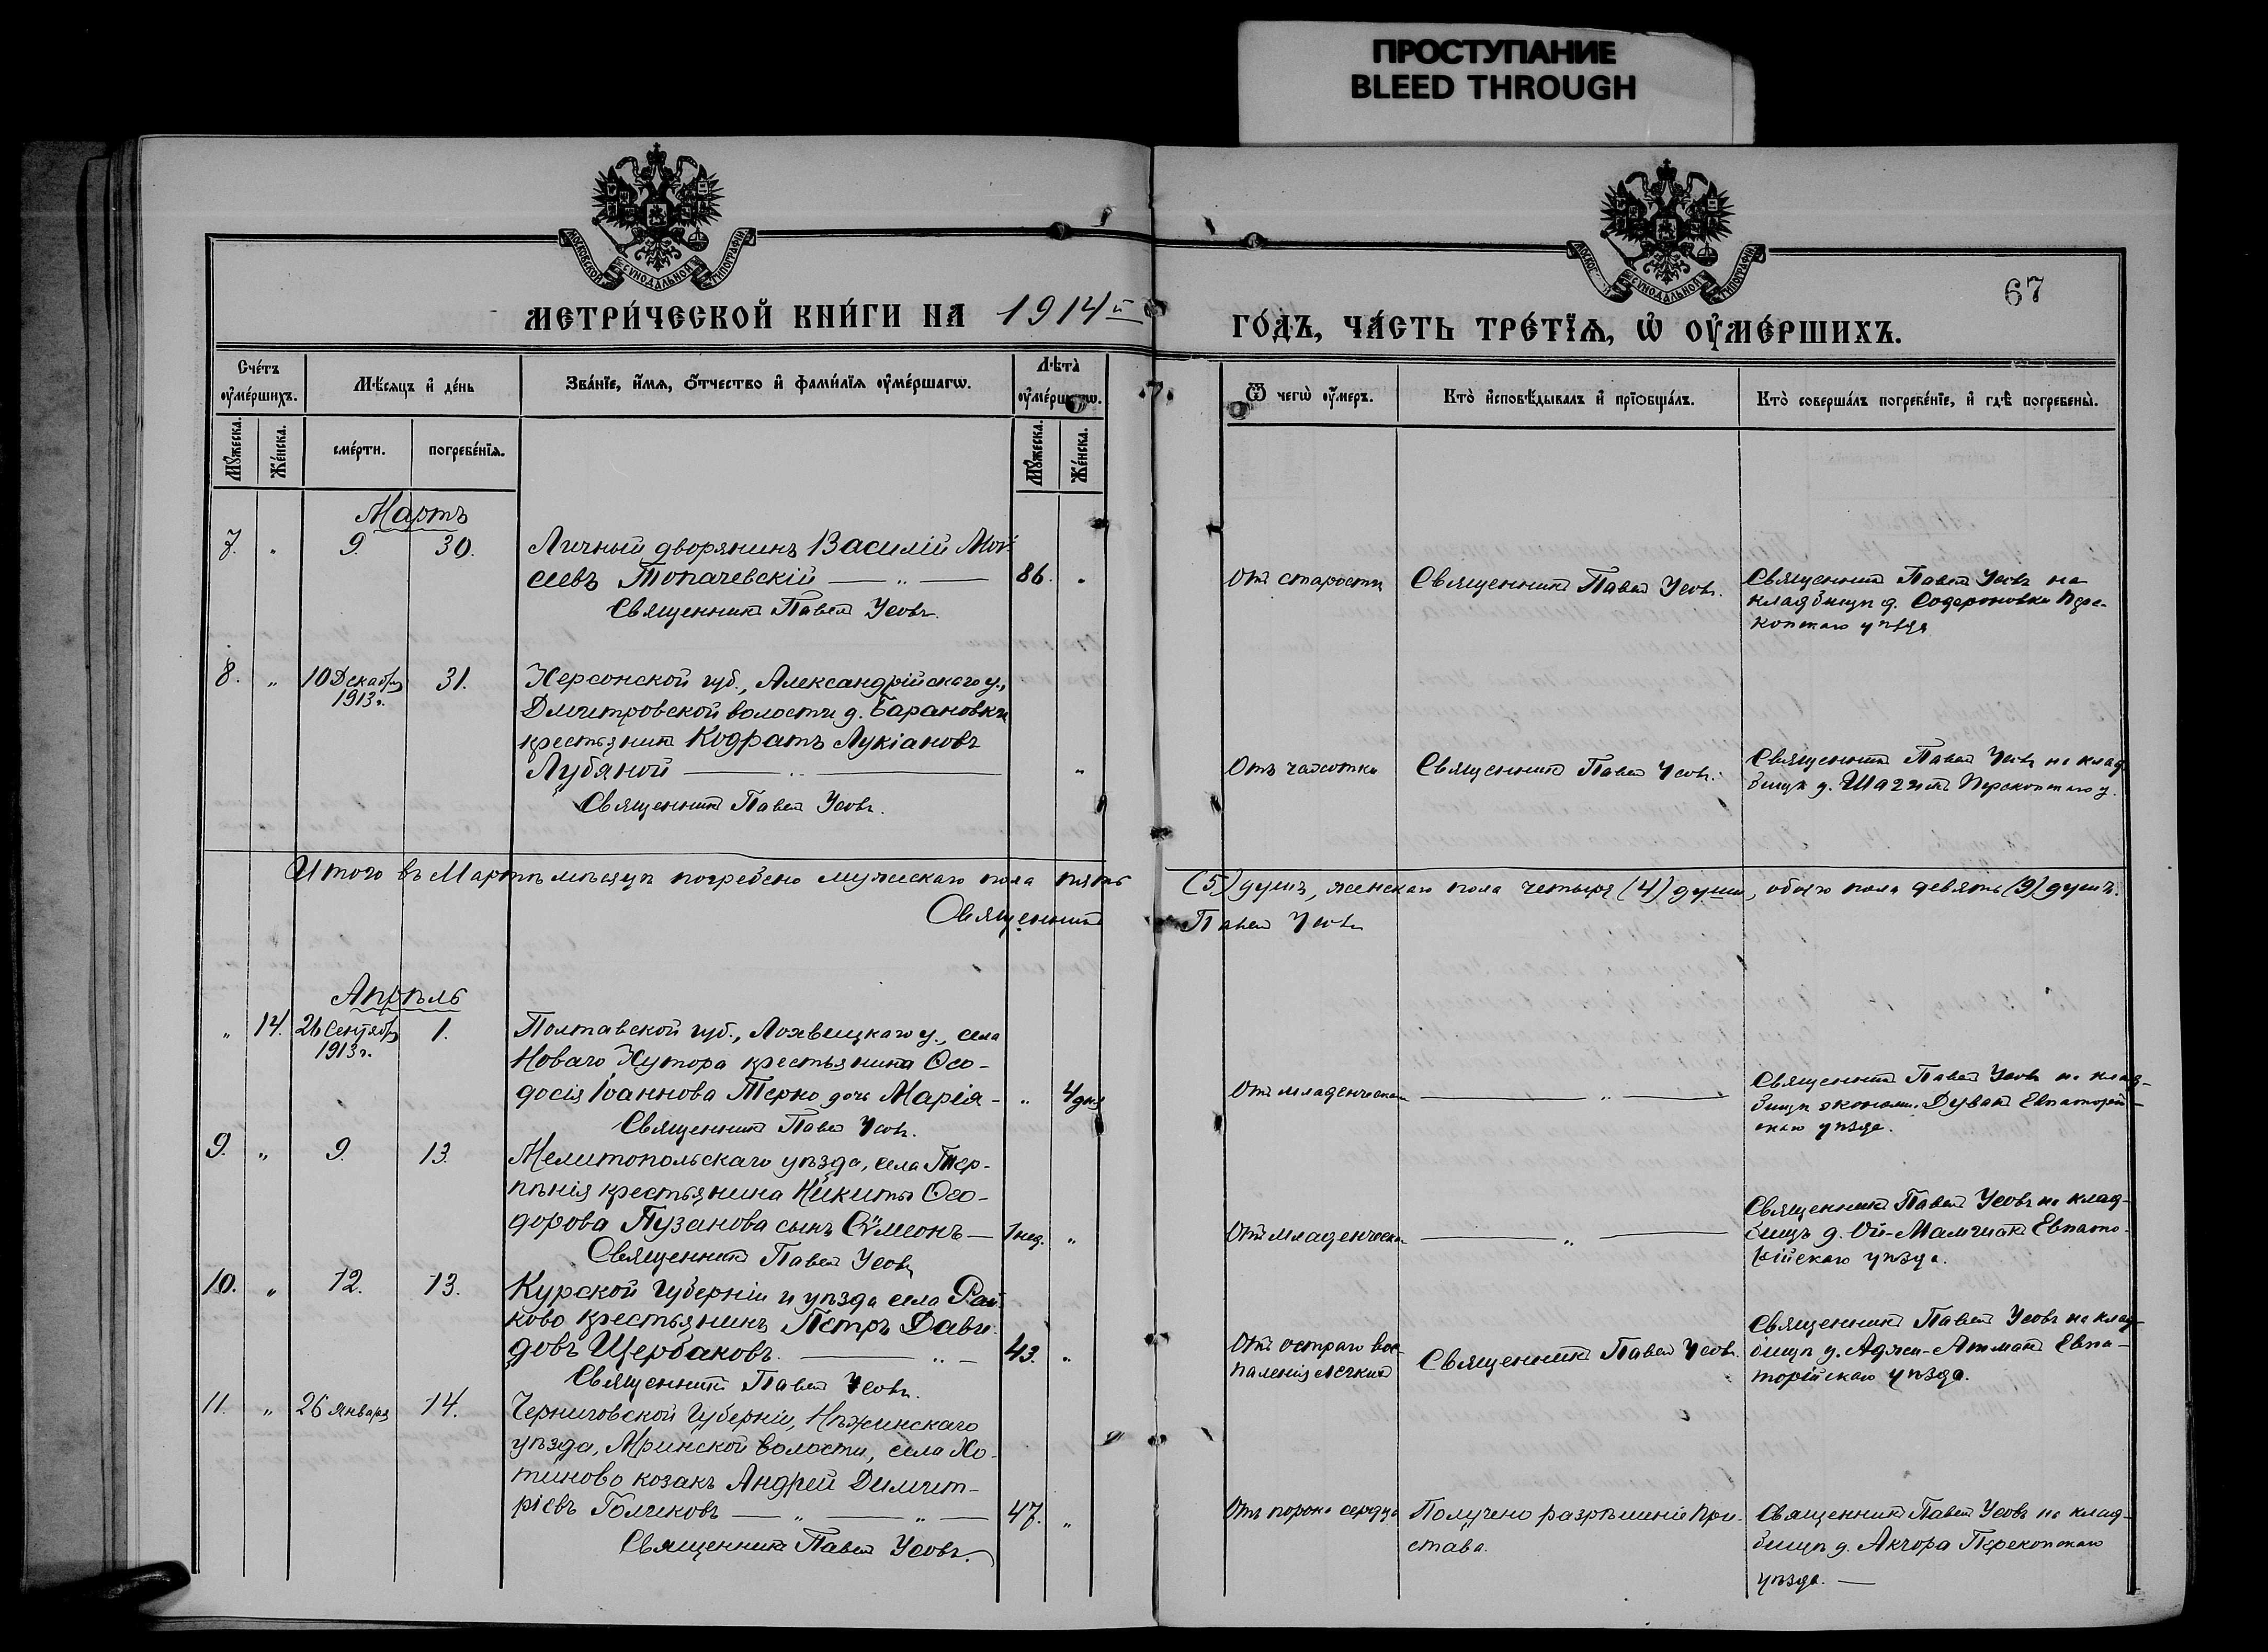 ПРОСТУПАНИЕ
BLEED THROUGH
МОСКОВСКОЙ СѴНОДАЛЬНОЙ ТИПОГРАФІИ
МОСКОВ. СѴНОДАЛЬНОЙ ТИПОГРАФІИ
67
МЕТРИ́ЧЕСКОЙ КНИ́ГИ НА 1914й
ГО́ДЪ, ЧА́СТЬ ТРЕ́ТЇѦ, Ѡ҆ ОУ҆МЕ́РШИХЪ.
Сче́тъ оу҆ме́ршихъ.
Мѣ́сяцъ и҆ де́нь
Зва́нїе, и҆́мѧ, ѻ҆́тчество и҆ фами́лїѧ оу҆ме́ршагѡ.
Лѣта̀ оу҆ме́ршагѡ.
Ѿ чегѡ̀ оу҆́меръ.
Кто̀ и҆сповѣ́дывалъ и҆ прїѡбща́лъ.
Кто̀ соверша́лъ погребе́нїе, и҆ гдѣ̀ погребены̀.
Му́жеска.
Же́нска.
сме́рти.
погребе́нїѧ.
Му́жеска.
Же́нска.
Мартъ
7. " 9. 30. Личный дворянинъ Василій Мои-
сеевъ Топачевскій — " — 86. "
Священникъ Павелъ Усовъ.
Отъ старости
Священникъ Павелъ Усовъ.
Священникъ Павелъ Усовъ на
кладбищѣ д. Пере-
копскаго уѣзда
8. " 10 Декабря 1913 г. 31. Херсонской губ., Александрійскаго у.,
Дмитровской волости д. Барановки
крестьянинъ Кодратъ Лукіановъ
Лубяной — " — "
Священникъ Павелъ Усовъ.
Отъ чахотки
Священникъ Павелъ Усовъ.
Священникъ Павелъ Усовъ на клад-
бищѣ д. Перекопскаго у.
Итого въ Мартѣ мѣсяцѣ погребено мужескаго пола пять (5) душъ, женскаго пола четыре (4) души, обоего пола девять (9) душъ.
Священникъ Павелъ Усовъ
Апрѣль
" 14. 26 Сентября 1913 г. 1. Полтавской губ., Лохвицкаго у., села
Новаго Хутора крестьянина Ѳео-
досія Іоаннова Терно дочь Марія — " 4 дня
Священникъ Павелъ Усовъ.
Отъ младенческой — " —
Священникъ Павелъ Усовъ на клад-
бищѣ эконом. Дуванъ Евпаторій-
скаго уѣзда.
9. " 9. 13. Мелитопольскаго уѣзда, села Тер-
пѣнія крестьянина Никиты Ѳео-
дорова Пузанова сынъ Сѵмеонъ — 1 нед. "
Священникъ Павелъ Усовъ
Отъ младенческой — " —
Священникъ Павелъ Усовъ на клад-
бищѣ д. Евпато-
рійскаго уѣзда.
10. " 12. 13. Курской губерніи и уѣзда села Рай-
ково крестьянинъ Петръ Дави-
довъ Щербаковъ. — " — 43. "
Священникъ Павелъ Усовъ.
Отъ остраго вос-
паленія легкихъ
Священникъ Павелъ Усовъ.
Священникъ Павелъ Усовъ на клад-
бищѣ д. Аджи-Атманъ Евпа-
торійскаго уѣзда.
11. " 26 Января 14. Черниговской Губерніи, Нѣжинскаго
уѣзда, Мринской волости, села Хо-
тиново козакъ Андрей Димит-
ріевъ Голиковъ — " — " — 47. "
Священникъ Павелъ Усовъ.
Отъ порока сердца
Получено разрѣшеніе При-
става.
Священникъ Павелъ Усовъ на клад-
бищѣ д. Акчора Перекопскаго
уѣзда. —